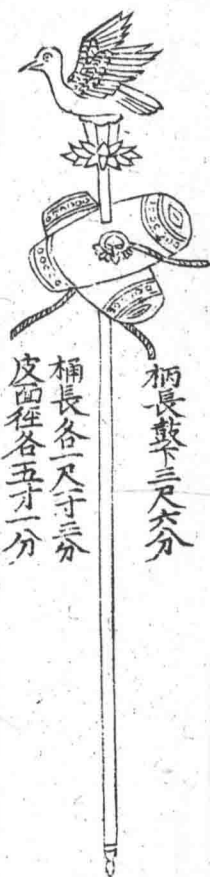 柄長鼓下三尺六分
桶長各一尺一寸三分
皮面徑各五寸一分